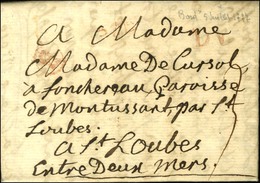 A Madame
Madame De Cursol,
a fonchereau, Paroisse
de Montussant, par St
Loubes.
A St Loubes
Entre Deux mers.